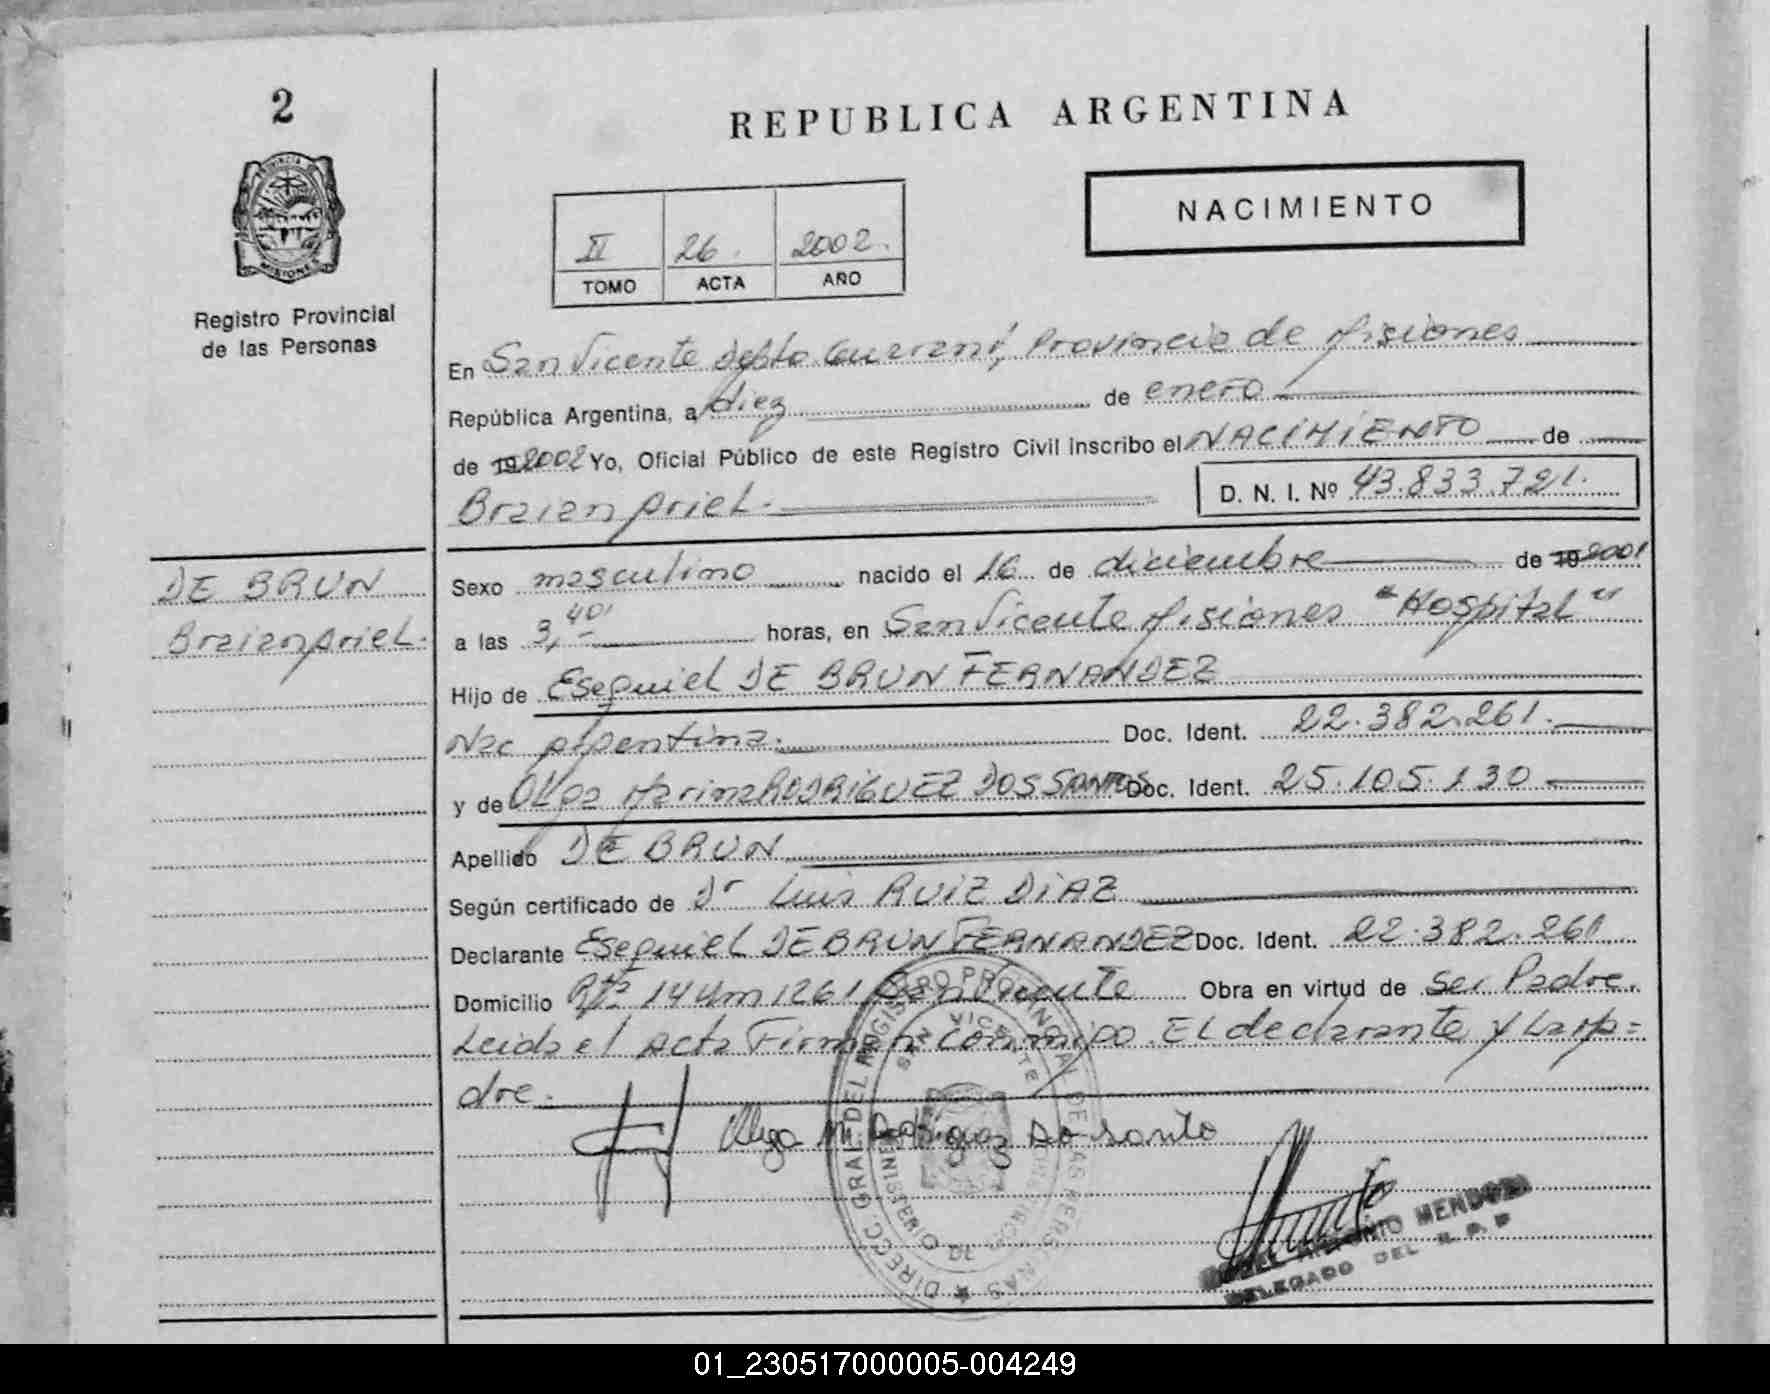 2
REPUBLICA ARGENTINA
PROVINCIA DE
MISIONES
NACIMIENTO
II 26. 2002.
TOMO ACTA AÑO
Registro Provincial
de las Personas
En San Vicente Depto Guarani, Provincia de Misiones
República Argentina, a diez de enero
de 19 2002 Yo, Oficial Público de este Registro Civil inscribo el NACIMIENTO de
Braian Ariel.
D. N. I. Nº 43.833.721.
DE BRUN
Braian Ariel.
Sexo masculino nacido el 16 de diciembre de 19 2001
a las 3,40' horas, en San Vicente Misiones "Hospital"
Hijo de Esequiel DE BRUN FERNANDEZ
Nac Argentina. Doc. Ident. 22.382.261.
y de Olga Marina RODRIGUEZ DOS SANTOS Doc. Ident. 25.105.130
Apellido DE BRUN
Según certificado de Dr Luis RUIZ DIAZ
Declarante Esequiel DE BRUN FERNANDEZ Doc. Ident. 22.382.261
Domicilio Rta 14 Km 1261 San Vicente Obra en virtud de Ser Padre.
Leida el Acta Firman conmigo EL declarante y La Ma=
dre.
Olga M Rodriguez Do Santo
DIRECC. GRAL. DEL REGISTRO PROVINCIAL DE LAS PERSONAS
SAN VICENTE
MINISTERIO DE
ANTONIO MENDOZA
DELEGADO DEL R. P. P
01_230517000005-004249